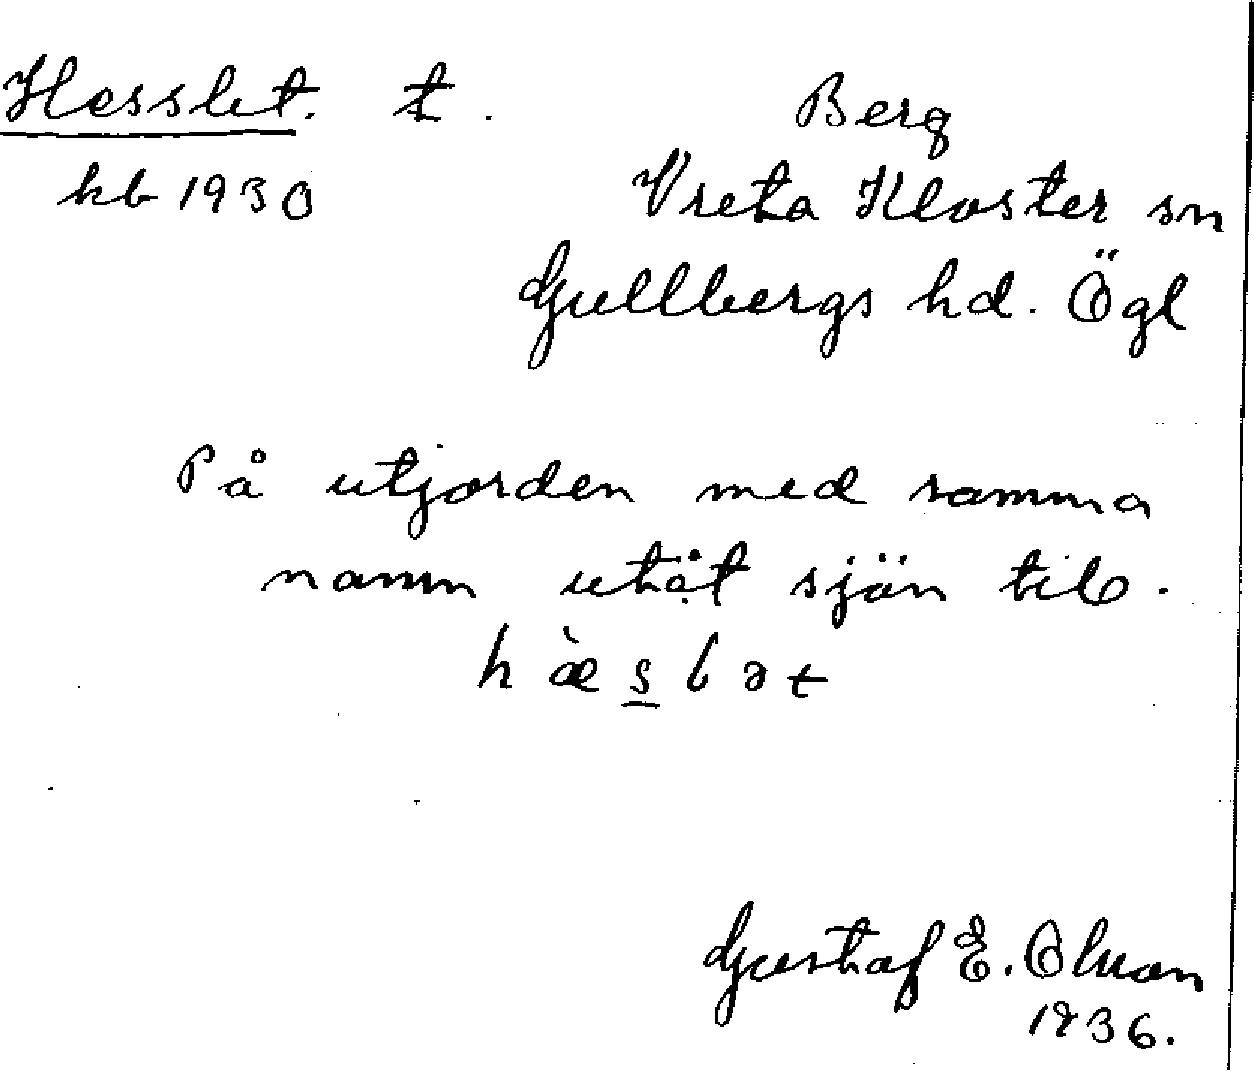 Hesslet. t. Berg
kb 1930 Vreta Kloster sn
Gullbergs hd. Ögl
På utjorden med samma
namn utåt sjön till.
hæ̀slət
Gustaf E. Olsson
1936.